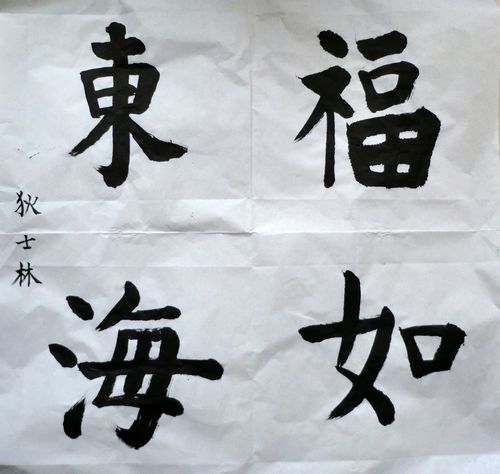 福如
東海
狄士林